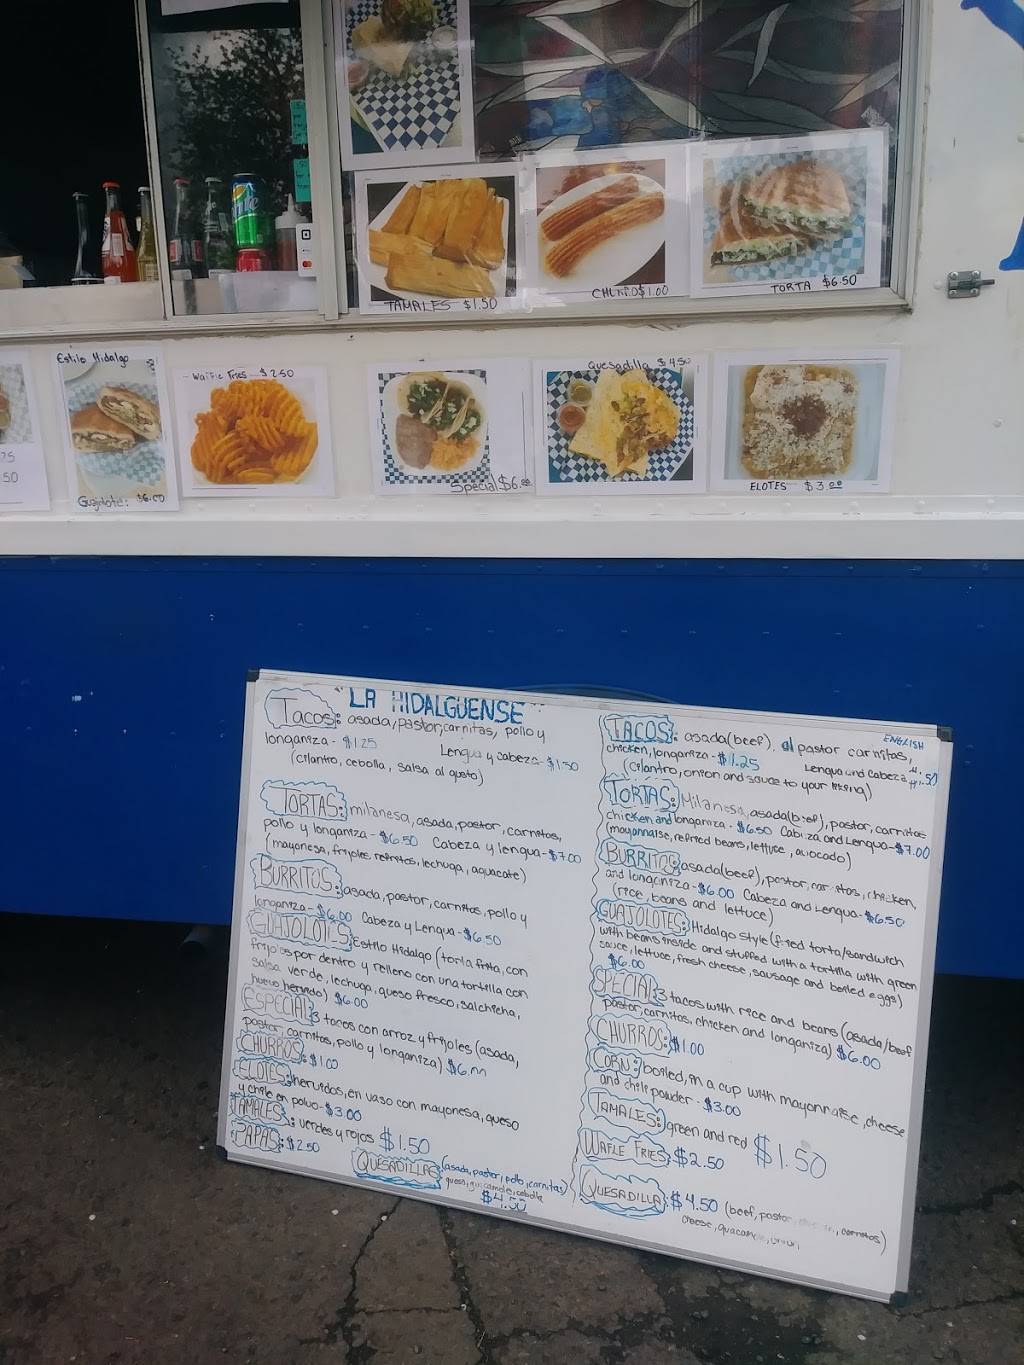 TAMALES $1.50
CHURRO $1.00
TORTA $6.50
Estilo Hidalgo
Guajolote: $6.00
Waffle Fries $2.50
Special $6.00
Quesadilla $4.50
ELOTES $3.00
"LA HIDALGUENSE"
Tacos: asada, pastor, carnitas, pollo y
longaniza - $1.25 Lengua y cabeza - $1.50
(cilantro, cebolla, salsa al gusto)
TORTAS: milanesa, asada, pastor, carnitas,
pollo y longaniza - $6.50 Cabeza y lengua - $7.00
(mayonesa, frijoles refritos, lechuga, aguacate)
BURRITOS: asada, pastor, carnitas, pollo y
longaniza - $6.00 Cabeza y Lengua - $6.50
GUAJOLOTES: Estilo Hidalgo (torta frita, con
frijoles por dentro y relleno con una tortilla con
salsa verde, lechuga, queso fresco, salchicha,
huevo hervido) $6.00
ESPECIAL: 3 tacos con arroz y frijoles (asada,
pastor, carnitas, pollo y longaniza) $6.00
CHURROS: $1.00
ELOTES: hervidos, en vaso con mayonesa, queso
y chile en polvo - $3.00
TAMALES: verdes y rojos $1.50
PAPAS: $2.50
QUESADILLAS (asada, pastor, pollo, carnitas)
queso, guacamole, cebolla
$4.50
ENGLISH
TACOS: asada(beef), al pastor carnitas,
chicken, longaniza - $1.25 Lengua and Cabeza $1.50
(cilantro, onion and sauce to your liking)
TORTAS: Milanesa, asada(beef), pastor, carnitas
chicken and longaniza - $6.50 Cabeza and Lengua - $7.00
(mayonnaise, refried beans, lettuce, avocado)
BURRITOS: asada(beef), pastor, carnitas, chicken,
and longaniza - $6.00 Cabeza and Lengua - $6.50
(rice, beans and lettuce)
GUAJOLOTES: Hidalgo style (fried torta/sandwich
with beans inside and stuffed with a tortilla with green
sauce, lettuce, fresh cheese, sausage and boiled eggs)
$6.00
SPECIAL: 3 tacos with rice and beans (asada/beef
pastor, carnitas, chicken and longaniza) $6.00
CHURROS: $1.00
CORN: boiled, in a cup with mayonnaise, cheese
and chile powder - $3.00
TAMALES: green and red $1.50
WAFLE FRIES: $2.50
QUESADILLA: $4.50 (beef, pastor, carnitas)
cheese, guacamole, onion